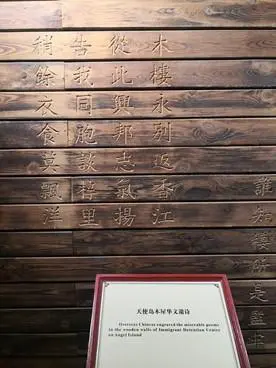 誰知棲所是監牢
木樓永別返香江
從此興邦志氣揚
告我同胞談梓里
稍餘衣食莫飄洋
天使岛木屋华文遗诗
Overseas Chinese engraved the miserable poems
in the wooden walls of Immigrant Detention Centre
on Angel Island